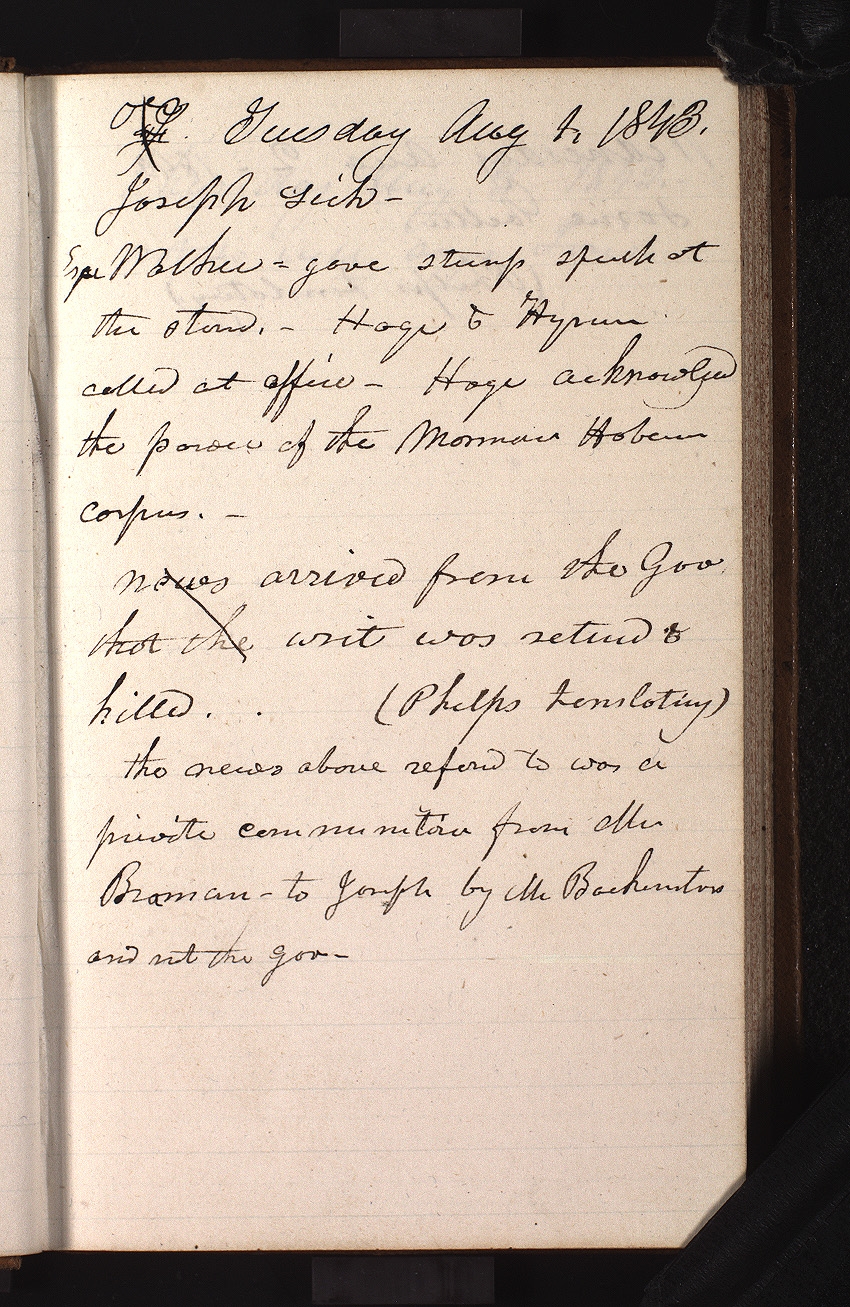 Tuesday Aug 1. 1843.
Joseph sick-
Esqr Walker = gave stump speech at
the stand. - Hoge & Hyrum
called at office - Hoge acknowlged
the power of the Mormon Habeus
corpus. -
news arrived from the Gov.
that the writ was returnd &
killed. . (Phelps translating)
the news above referd to was a
private communication from Mr
Braman - to Joseph by Mr Backenstos
and not the gov -